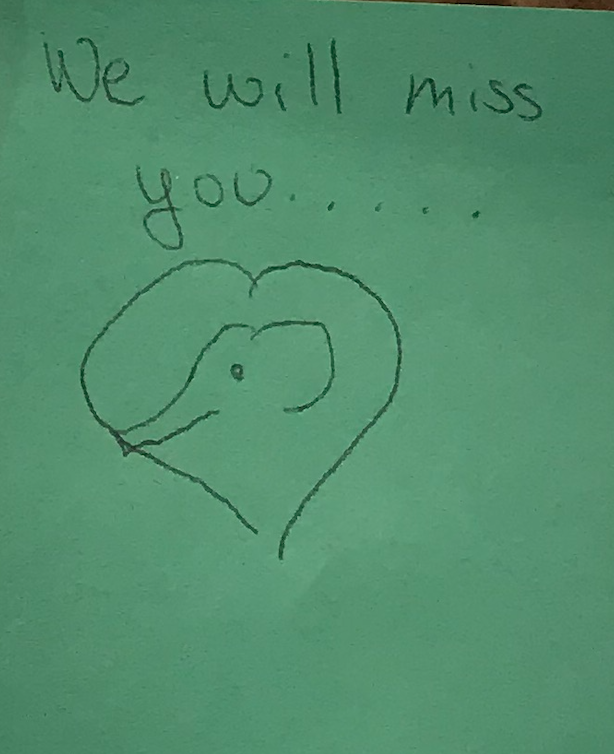 We will miss
you......